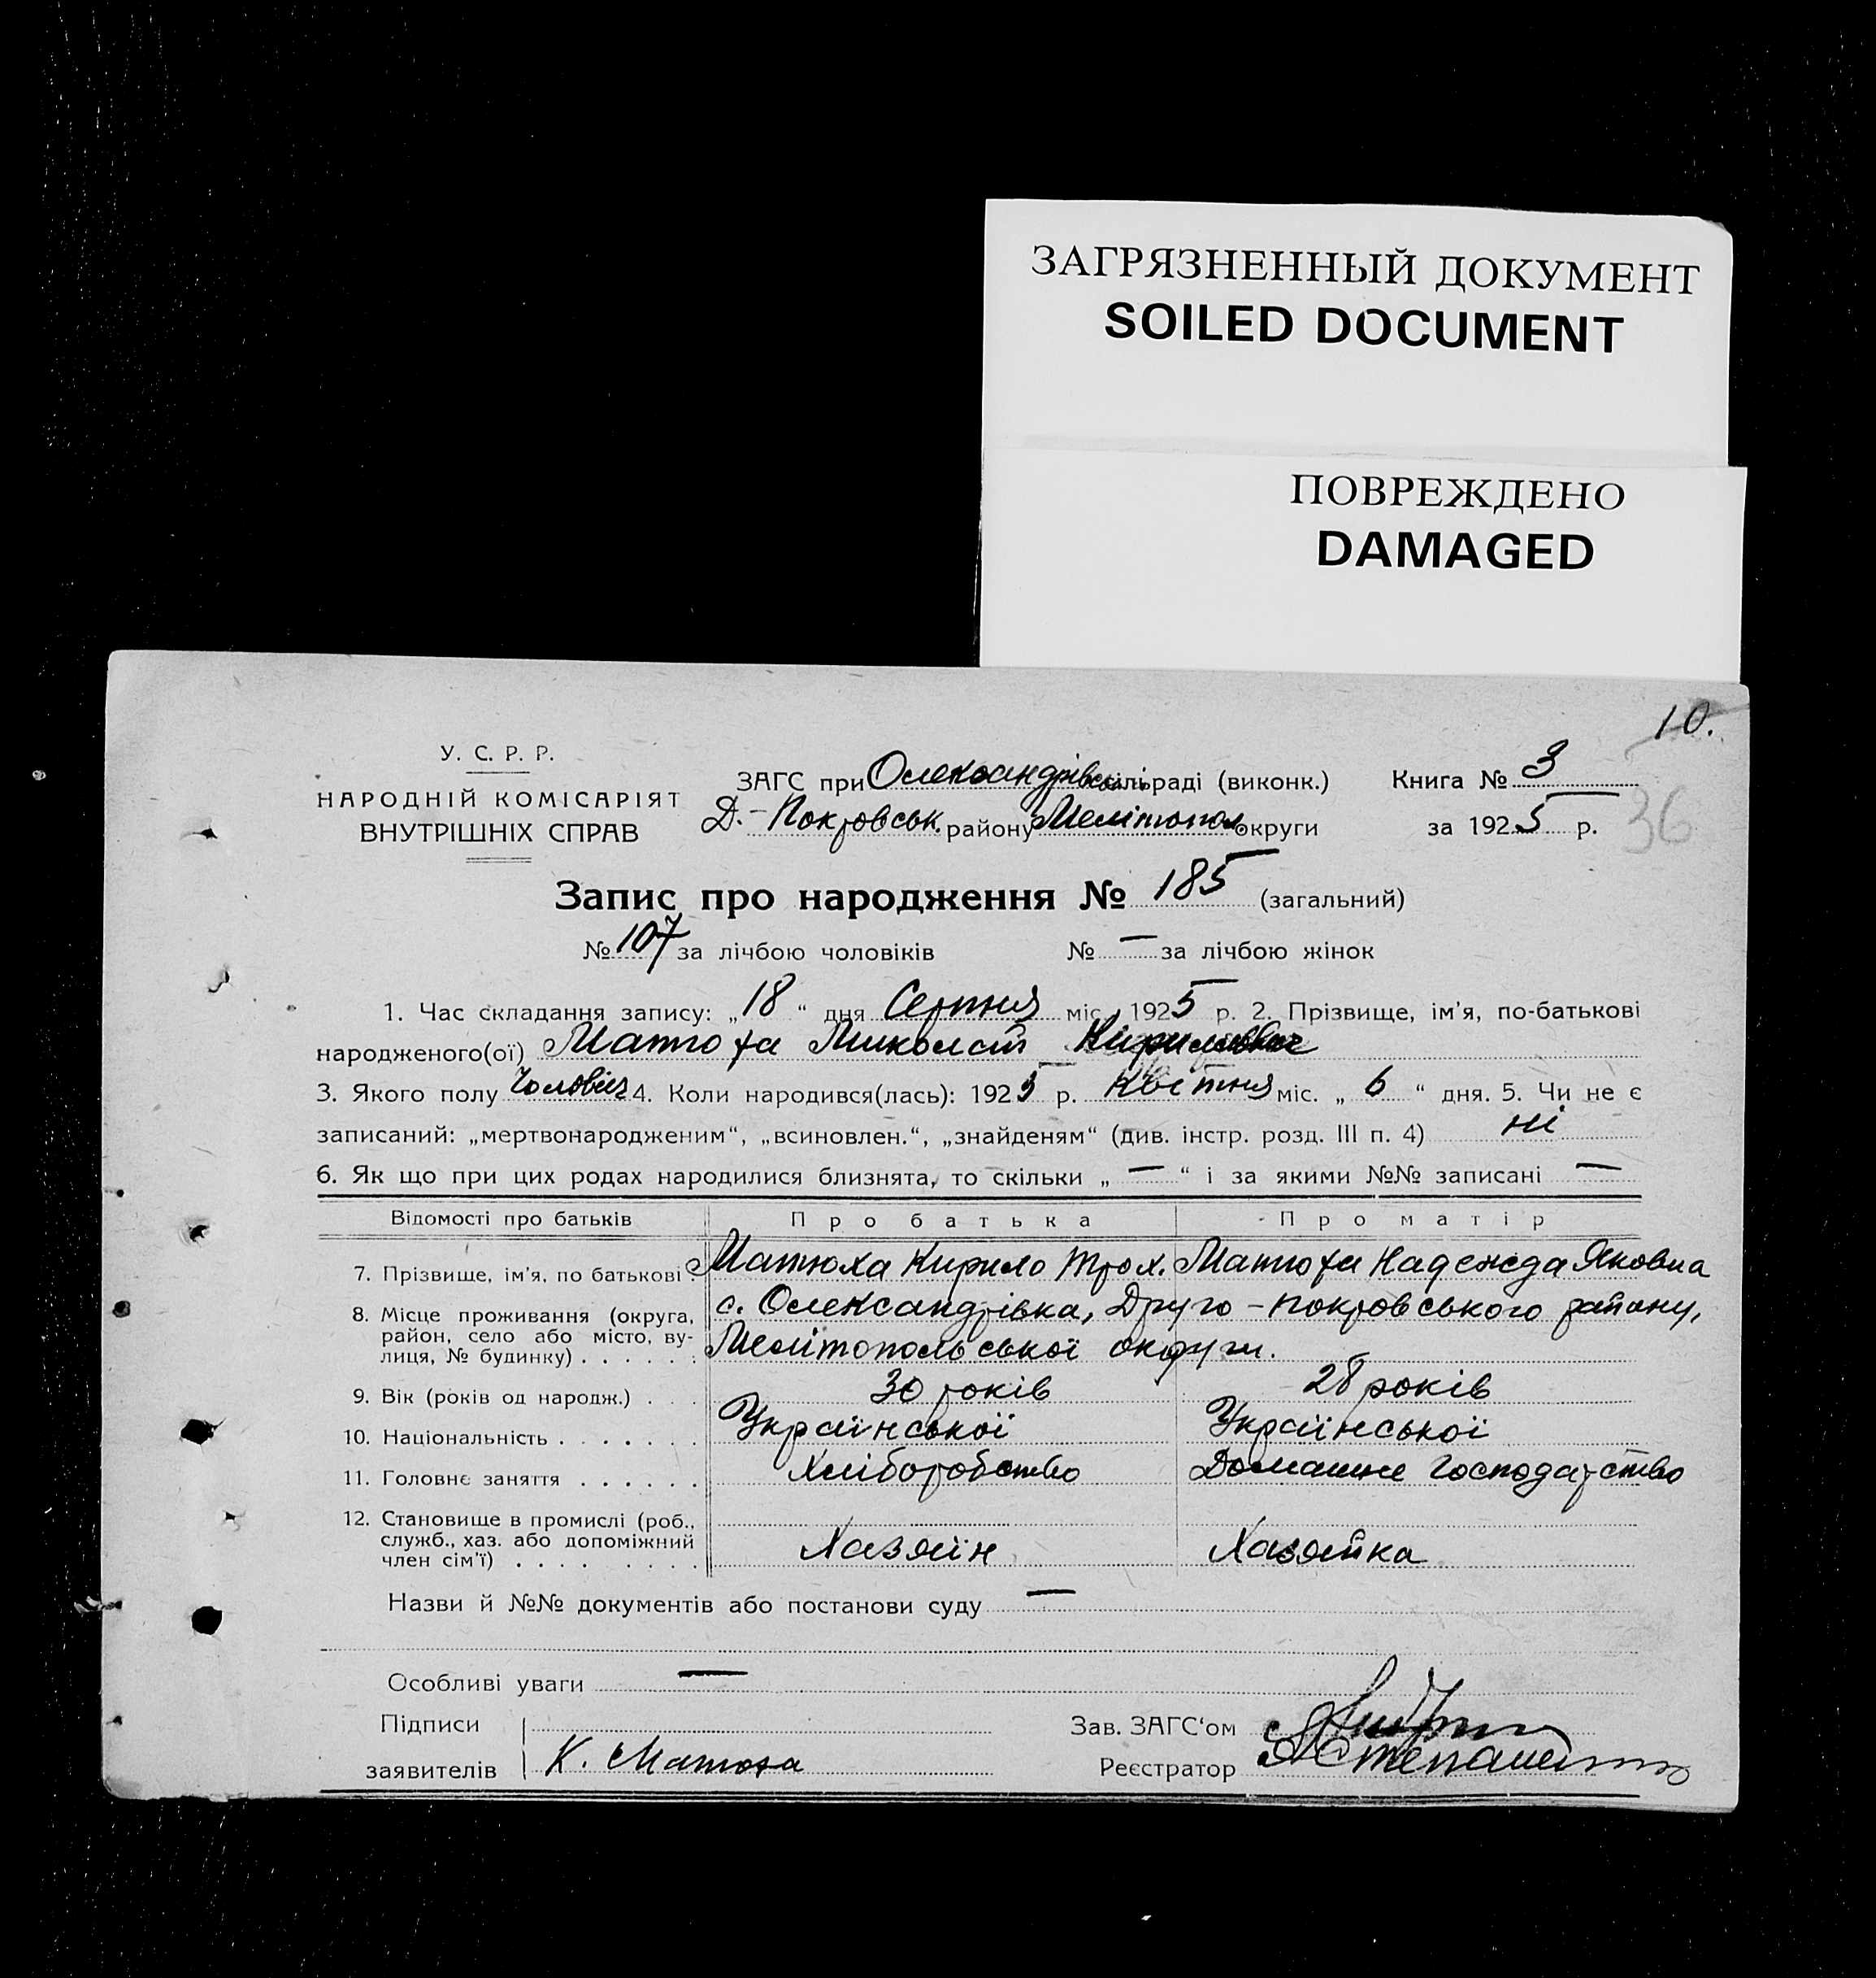 ЗАГРЯЗНЕННЫЙ ДОКУМЕНТ
SOILED DOCUMENT
ПОВРЕЖДЕНО
DAMAGED
10.
36
У. С. Р. Р.
НАРОДНІЙ КОМІСАРІЯТ
ВНУТРІШНІХ СПРАВ
ЗАГС при Олександрівській раді (виконк.) Книга № 3
Д.-Покровськ. району Мелітопол. округи за 1925 р.
Запис про народження № 185 (загальний)
№ 107 за лічбою чоловіків № — за лічбою жінок
1. Час складання запису: „18“ дня Серпня міс. 1925 р. 2. Прізвище, ім'я, по-батькові
народженого(ої) Матюха Миколай Кирилович
3. Якого полу Чоловіч 4. Коли народився(лась): 1925 р. Квітня міс. „6“ дня. 5. Чи не є
записаний: „мертвонародженим“, „всиновлен.“, „знайденям“ (див. інстр. розд. III п. 4) ні
6. Як що при цих родах народилися близнята, то скільки „—“ і за якими №№ записані —
Відомості про батьків Про батька Про матір
7. Прізвище, ім'я, по батькові Матюха Кирило Трох. Матюха Надежда Яковна
8. Місце проживання (округа, район, село або місто, вулиця, № будинку) . . . . . . с. Олександрівка, Друго-покровського району,
Мелітопольської округи.
9. Вік (років од народж.) . . . 30 років 28 років
10. Національність . . . . . . . Української Української
11. Головнє заняття . . . . . . Хліборобство Домашне господарство
12. Становище в промислі (роб., служб., хаз. або допоміжний член сім'ї) . . . . . . . Хазяїн Хазяйка
Назви й №№ документів або постанови суду —
Особливі уваги —
Підписи Зав. ЗАГС'ом
заявителів К. Матюха Реєстратор